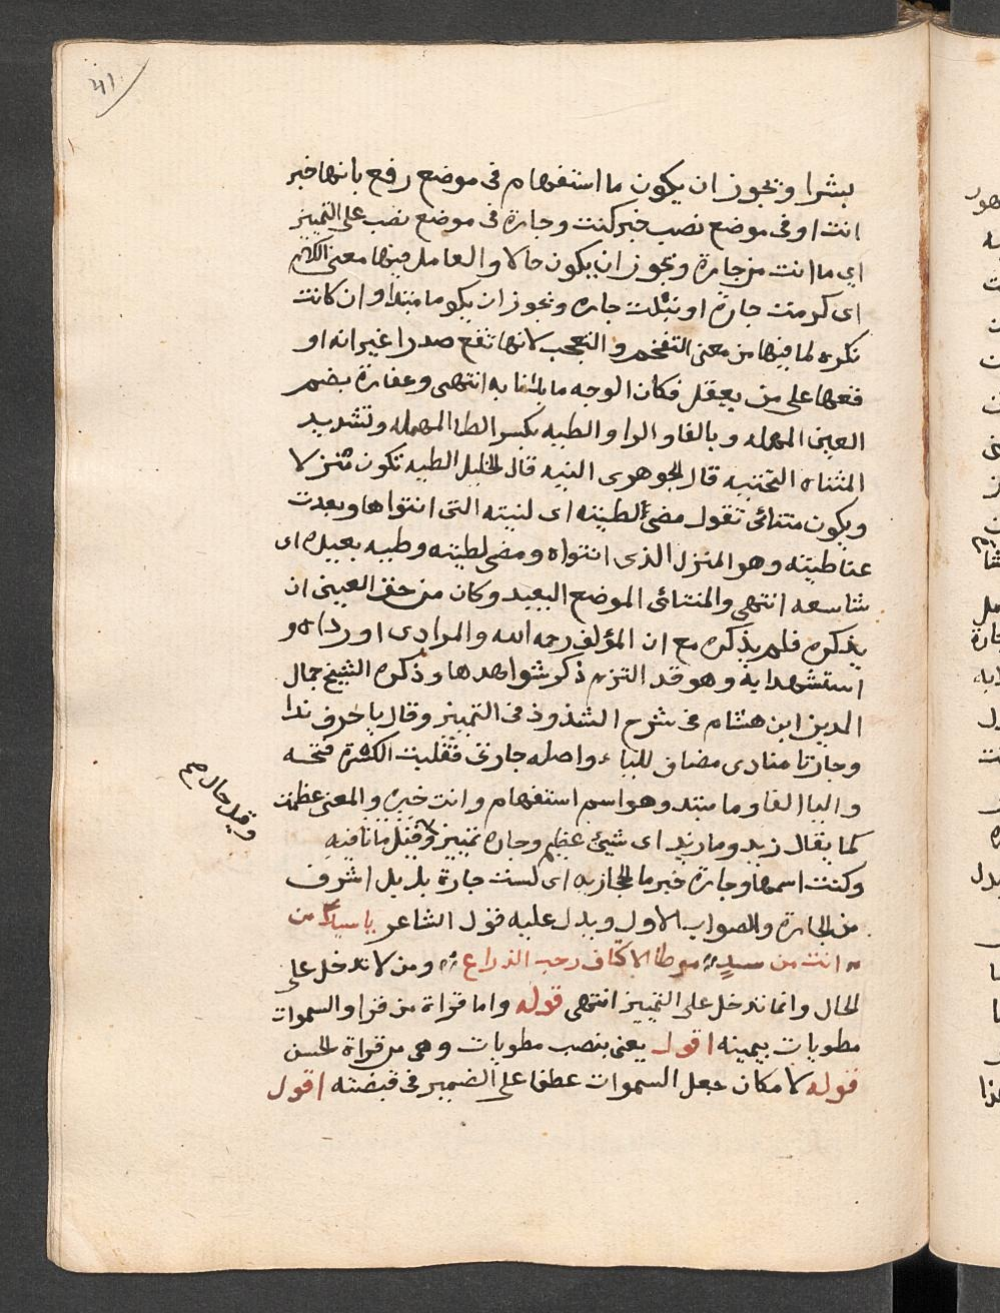 ٤١
بشرا ويجوز ان يكون ما استفهام فى موضع رفع بانها خبر
انت او فى موضع نصب خبر كنت وجارة فى موضع نصب على التمييز
اى ما انت من جارة ويجوز ان يكون حالا والعامل فيها معنى الكلام
اى كرمت جارة او نبلت جاره ويجوز ان يكو ما مبتدا وان كانت
نكره لما فيها من معنى التفخم والتعجب لانها تقع صدرا غير انه او
قعها على من يعقل فكان الوجه ما بدأنا به انتهى وعفارة بضم
العين المهمله وبالفا والرا والطيه بكسر الطا المهمله وتشديد
المثناه التحتيه قال الجوهرى النيه قال الخليل الطيه تكون منزلا
ويكون منتائى تقول مضى لطيته اى لنيته التى انتواها وبعدت
عنا طيته وهو المنزل الذى انتواه ومضى لطيته وطيه بعيده اى
شاسعه انتهى والمنتائى الموضع البعيد وكان من حق العينى ان
يذكره فلم يذكره مع ان المؤلف رحمه الله والمرادى اورداه و
استشهدا به وهو قد التزم ذكر شواهدها وذكره الشيخ جمال
الدين ابن هشام فى شرح الشذوذ فى التمييز وقال يا حرف ندا
وجارتا منادى مضاف للياء واصله جارتى فقلبت الكسرة فتحه
واليا الفا وما مبتد وهو اسم استفهام وانت خبره والمعنى عظمت
كما يقال زيد وما زيد اى شيئ عظيم وجاره تمييز وقيل ما نافيه
وقيل حال صح
وكنت اسمها وجارة خبر ما الحجازيه اى لست جارة بل بل اشرف
من الجارة والصواب الاول ويدل عليه قول الشاعر يا سيدا من
ه انت من سيد ه موطا الاكتاف رحب الذراع ه ومن لا تدخل على
الحال وانما تدخل على التمييز انتهى قوله واما قراة من قرا والسموات
مطويات بيمينه اقول يعنى بنصب مطويات وهى من قراة الحسن
قوله لا مكان جعل السموات عطفا على الضمير فى قبضته اقول